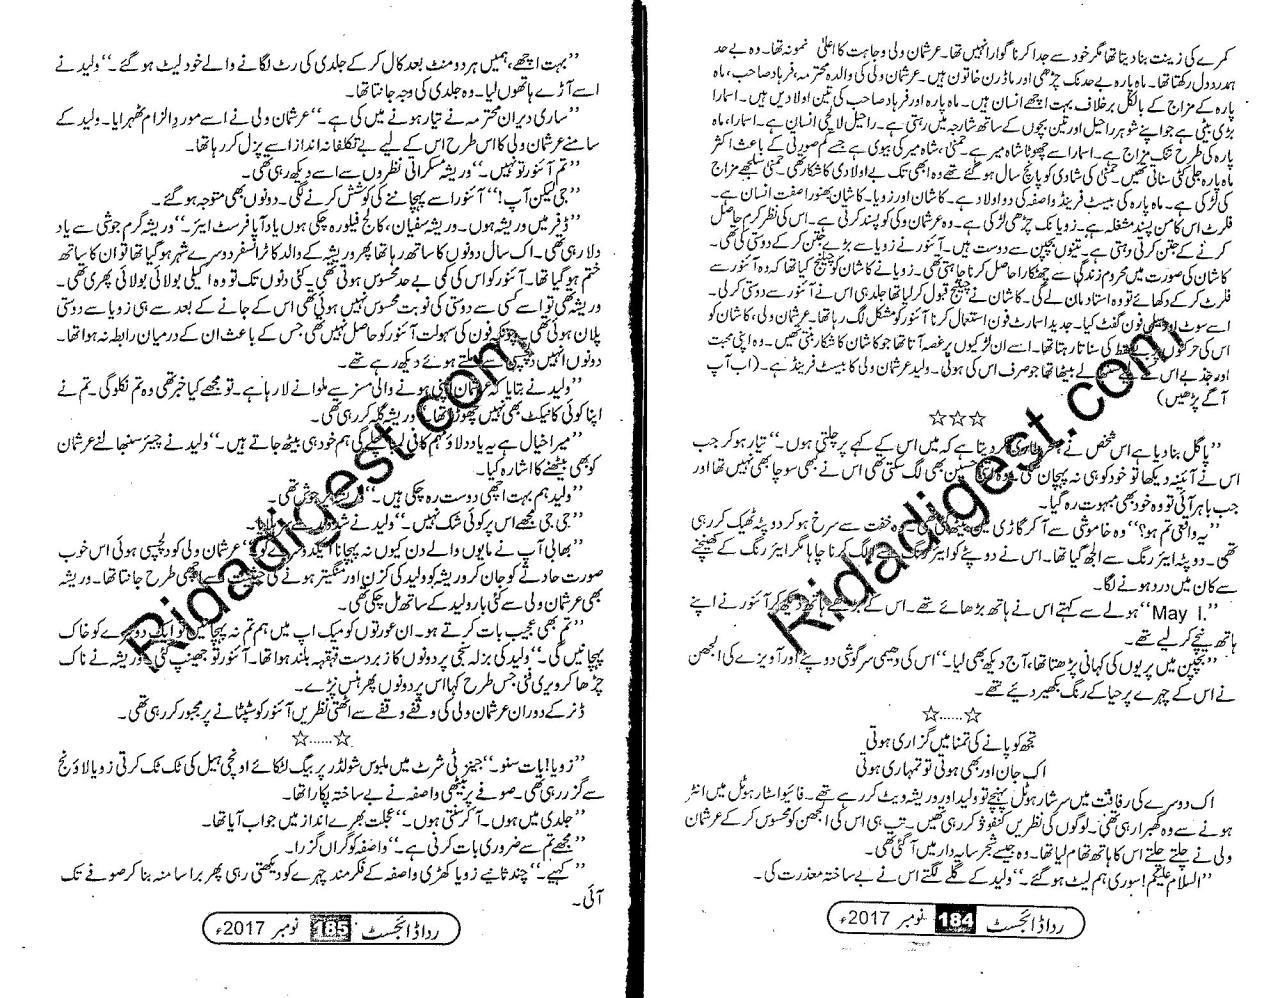 کمرے کی زینت بنا دیتا تھا مگر خود سے جدا کرنا گوارا نہیں تھا۔ عرشمان ولی وجاہت کا اعلیٰ نمونہ تھا۔ وہ بے حد
ہمدرد دل رکھتا تھا۔ ماہ پارہ بے حد نک چڑھی اور ماڈرن خاتون ہیں۔ عرشمان ولی کی والدہ محترمہ، فرہاد صاحب، ماہ
پارہ کے مزاج کے بالکل برخلاف بہت اچھے انسان ہیں۔ ماہ پارہ اور فرہاد صاحب کی تین اولادیں ہیں۔ اسمارا
بڑی بیٹی ہے جو اپنے شوہر راحیل اور تین بچوں کے ساتھ شارجہ میں رہتی ہے۔ راحیل لالچی انسان ہے۔ اسمارا، ماہ
پارہ کی طرح تنک مزاج ہے۔ اسمارا سے چھوٹا شاہ میر ہے۔ شاہ میر کی بیوی ہے جسے کم صورتی کے باعث اکثر
ماہ پارہ جلی کٹی سناتی تھیں۔ کی شادی کو پانچ سال ہو گئے تھے وہ ابھی تک بے اولادی کا شکار تھی۔ سلجھے مزاج
کی لڑکی ہے۔ ماہ پارہ کی بیسٹ فرینڈ واصفہ کی دو اولاد ہے۔ کاشان اور زویا۔ کاشان بھنورا صفت انسان ہے۔
فلرٹ اس کا من پسند مشغلہ ہے۔ زویا نک چڑھی لڑکی ہے۔ وہ عرشمان ولی کو پسند کرتی ہے۔ اس کی نظر کرم حاصل
کرنے کے جتن کرتی رہتی ہے۔ تینوں بچپن سے دوست ہیں۔ آئنور نے زویا سے بڑے جتن کر کے دوستی کی تھی۔
کاشان کی صورت میں محروم زندگی سے چھٹکارا حاصل کرنا چاہتی تھی۔ زویا نے کاشان کو چیلنج کیا تھا کہ وہ آئنور سے
فلرٹ کر کے دکھائے تو وہ استاد مان لے گی۔ کاشان نے چیلنج قبول کر لیا تھا جلد ہی اس نے آئنور سے دوستی کر لی۔
اسے سوٹ اور فون گفٹ کیا۔ جدید اسمارٹ فون استعمال کرنا آئنور کو مشکل لگ رہا تھا۔ عرشمان ولی، کاشان کو
اس کی حرکتوں کی سناتا رہتا تھا۔ اسے ان لڑکیوں پر غصہ آتا تھا جو کاشان کا شکار بنتی تھیں۔ وہ اپنی محبت
اور جذبے اس کے لیے سنبھالے بیٹھا تھا جو صرف اس کی ہوگی۔ ولید عرشمان ولی کا بیسٹ فرینڈ ہے۔ (اب آپ
آگے پڑھیں)
☆☆☆
”پاگل بنا دیا ہے اس شخص نے کر دیتا ہے کہ میں اس کے کہے پر چلتی ہوں۔“ تیار ہو کر جب
اس نے آئینہ دیکھا تو خود کو ہی نہ پہچان حسین بھی لگ سکتی تھی اس نے بھی سوچا بھی نہیں تھا اور
جب باہر آئی تو وہ خود بھی مبہوت رہ گیا۔
”یہ واقعی تم ہو؟“ وہ خاموشی سے آ کر گاڑی میں وہ خفت سے سرخ ہو کر دوپٹہ ٹھیک کر رہی
تھی۔ دوپٹہ ایئر رنگ سے الجھ گیا تھا۔ اس نے دوپٹے کو ایئر رنگ سے الگ کرنا چاہا مگر ایئر رنگ کے کھنچنے
سے کان میں درد ہونے لگا۔
”May I.“ ہولے سے کہتے اس نے ہاتھ بڑھائے تھے۔ اس کے بڑھے ہاتھ دیکھ کر آئنور نے اپنے
ہاتھ نیچے کر لیے تھے۔
”بچپن میں پریوں کی کہانی پڑھتا تھا، آج دیکھ بھی لیا۔“ اس کی دھیمی سرگوشی دوپٹے اور آویزے کی الجھن
نے اس کے چہرے پر حیا کے رنگ بکھیر دیئے تھے۔
☆......☆
تجھ کو پانے کی تمنا میں گزاری ہوتی
اک جان اور بھی ہوتی تو تمہاری ہوتی
اک دوسرے کی رفاقت میں سرشار ہوٹل پہنچے تو ولید اور وریشہ ویٹ کر رہے تھے۔ فائیو اسٹار ہوٹل میں انٹر
ہونے سے وہ گھبرا رہی تھی۔ لوگوں کی نظریں کنفیوژ کر رہی تھیں۔ تب ہی اس کی الجھن کو محسوس کر کے عرشمان
ولی نے چلتے چلتے اس کا ہاتھ تھام لیا تھا۔ وہ جیسے شجر سایہ دار میں آ گئی تھی۔
”السلام علیکم! سوری ہم لیٹ ہو گئے۔“ ولید کے گلے لگتے اس نے بے ساختہ معذرت کی۔
ردا ڈائجسٹ 184 نومبر 2017ء
”بہت اچھے، ہمیں ہر دو منٹ بعد کال کر کے جلدی کی رٹ لگانے والے خود لیٹ ہو گئے۔“ ولید نے
اسے آڑے ہاتھوں لیا۔ وہ جلدی کی وجہ جانتا تھا۔
”ساری دیر ان محترمہ نے تیار ہونے میں کی ہے۔“ عرشمان ولی نے اسے مورد الزام ٹھہرایا۔ ولید کے
سامنے عرشمان ولی کا اس طرح اس کے لیے بے تکلفانہ انداز اسے پزل کر رہا تھا۔
”تم آئنور تو نہیں۔“ وریشہ مسکراتی نظروں سے اسے دیکھ رہی تھی۔
”جی لیکن آپ!“ آئنور اسے پہچاننے کی کوشش کرنے لگی۔ دونوں بھی متوجہ ہو گئے۔
”ڈفر میں وریشہ ہوں۔ وریشہ سفیان، کالج فیلو رہ چکی ہوں یاد آیا فرسٹ ایئر۔“ وریشہ گرم جوشی سے یاد
دلا رہی تھی۔ اک سال دونوں کا ساتھ رہا تھا پھر وریشہ کے والد کا ٹرانسفر دوسرے شہر ہو گیا تھا تو ان کا ساتھ
ختم ہو گیا تھا۔ آئنور کو اس کی کمی بے حد محسوس ہوتی تھی۔ کئی دنوں تک تو وہ اکیلی بولائی بولائی پھری تھی۔
وریشہ تھی تو اسے کسی سے دوستی کی نوبت محسوس نہیں ہوئی تھی اس کے جانے کے بعد سے ہی زویا سے دوستی
پلان ہوئی تھی۔ چونکہ فون کی سہولت آئنور کو حاصل نہیں تھی جس کے باعث ان کے درمیان رابطہ نہ ہوا تھا۔
دونوں انہیں دلچسپی سے ملتے ہوئے دیکھ رہے تھے۔
”ولید نے بتایا کہ عرشمان اپنی ہونے والی مسز سے ملوانے لا رہا ہے۔ تو مجھے کیا خبر تھی وہ تم نکلو گی۔ تم نے
اپنا کوئی کانٹیکٹ بھی نہیں چھوڑا تھا۔“ وریشہ گلہ کر رہی تھی۔
”میرا خیال ہے یہ یاد دلاؤ مہم کافی لمبی چلے گی ہم خود ہی بیٹھ جاتے ہیں۔“ ولید نے چیئر سنبھالتے عرشمان
کو بھی بیٹھنے کا اشارہ کیا۔
”ولید ہم بہت اچھی دوست رہ چکی ہیں۔“ وریشہ پرجوش تھی۔
”جی جی مجھے اس پر کوئی شک نہیں۔“ ولید نے
”بھابی آپ نے مایوں والے دن کیوں نہ پہچانا ایک دوسرے کو؟“ عرشمان ولی کو دلچسپی ہوئی اس خوب
صورت حادثے کو جان کر وریشہ کو ولید کی کزن اور منگیتر ہونے کی حیثیت سے اچھی طرح جانتا تھا۔ وریشہ
بھی عرشمان ولی سے کئی بار ولید کے ساتھ مل چکی تھی۔
”تم بھی عجیب بات کرتے ہو۔ ان عورتوں کو میک اپ میں ہم تم نہ پہچانیں تو ایک دوسرے کو خاک
پہچانیں گی۔“ ولید کی بذلہ سنجی پر دونوں کا زبردست قہقہہ بلند ہوا تھا۔ آئنور تو جھینپ گئی وریشہ نے ناک
چڑھا کر ویری فنی جس طرح کہا اس پر دونوں پھر ہنس پڑے۔
ڈنر کے دوران عرشمان ولی کی وقفے وقفے سے اٹھتی نظریں آئنور کو سٹپٹانے پر مجبور کر رہی تھی۔
☆......☆
”زویا! بات سنو۔“ جینز ٹی شرٹ میں ملبوس شولڈر پر بیگ لٹکائے اونچی ہیل کی ٹک ٹک کرتی زویا لاؤنج
سے گزر رہی تھی۔ صوفے پر بیٹھی واصفہ نے بے ساختہ پکارا تھا۔
”جلدی میں ہوں۔ آ کر سنتی ہوں۔“ عجلت بھرے انداز میں جواب آیا تھا۔
”مجھے تم سے ضروری بات کرنی ہے۔“ واصفہ کو گراں گزرا۔
”کہیے۔“ چند ثانیے زویا کھڑی واصفہ کے فکر مند چہرے کو دیکھتی رہی پھر برا سا منہ بنا کر صوفے تک
آئی۔
ردا ڈائجسٹ 185 نومبر 2017ء
Ridadigest.com
Ridadigest.com